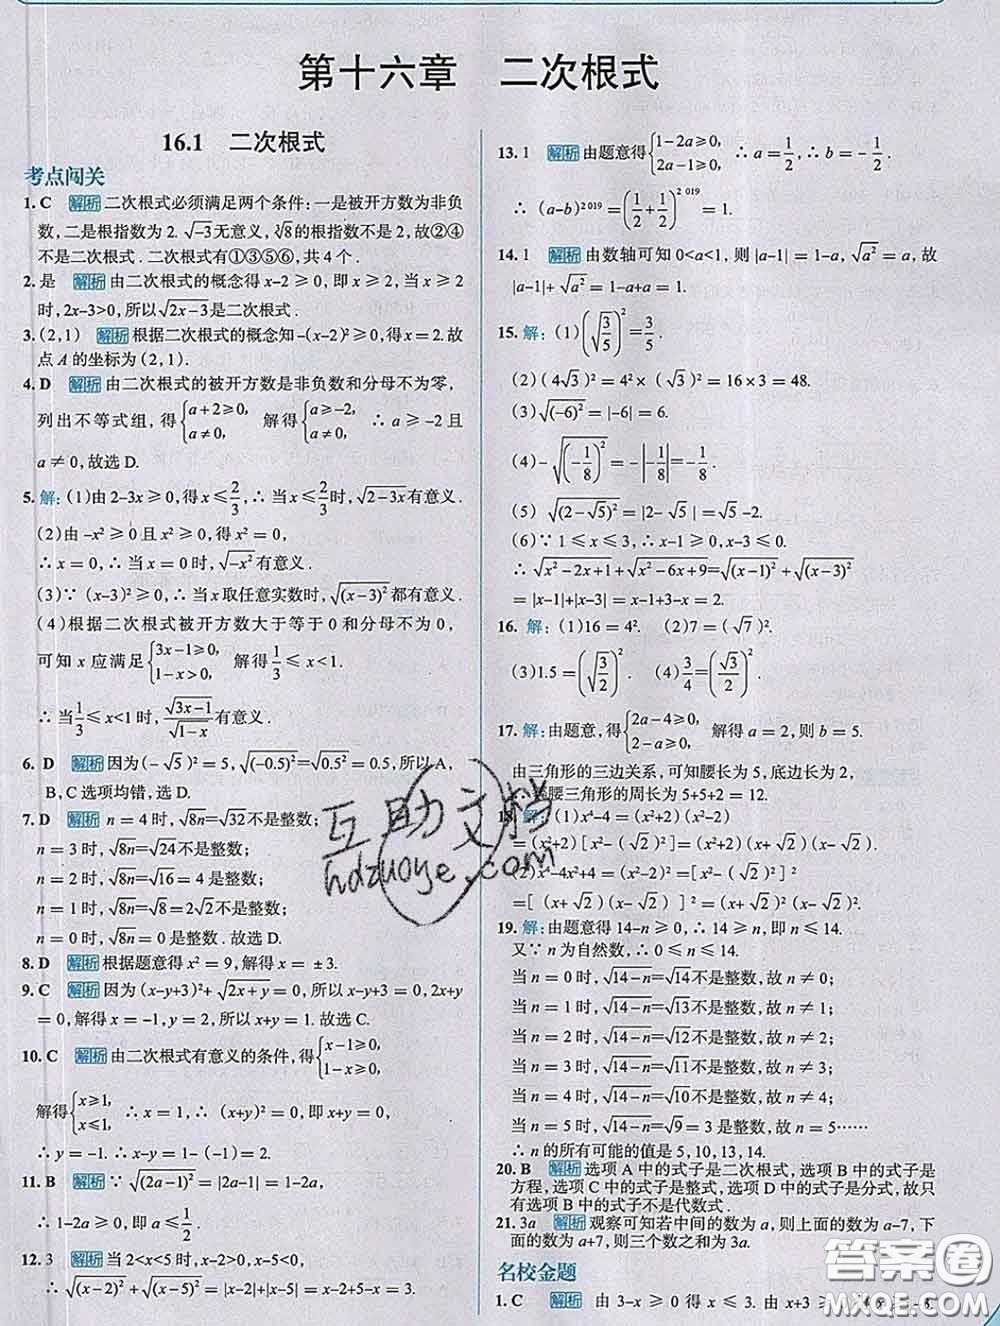 第十六章　二次根式
16.1　二次根式
考点闯关
1. C 解析 二次根式必须满足两个条件:一是被开方数为非负
数,二是根指数为 2. √-3无意义,∛8的根指数不是 2,故②④
不是二次根式.二次根式有①③⑤⑥,共 4 个.
2. 是 解析 由二次根式的概念得 x-2≥0,即 x≥2,当 x≥2
时,2x-3>0,所以√(2x-3)是二次根式.
3. (2,1) 解析 根据二次根式的概念知-(x-2)²≥0,得 x=2.故
点 A 的坐标为(2,1).
4. D 解析 由二次根式的被开方数是非负数和分母不为零,
列出不等式组,得{a+2≥0, a≠0, 解得{a≥-2, a≠0, ∴ a≥-2 且
a≠0,故选 D.
5. 解:(1)由 2-3x≥0,得 x≤2/3,∴ 当 x≤2/3时,√(2-3x)有意义.
(2)由 -x²≥0 且 x²≥0,得 x²=0,
∴ x=0,∴ 当 x=0 时,√(-x²)有意义.
(3)∵ (x-3)²≥0,∴ 当 x 取任意实数时,√((x-3)²)都有意义.
(4)根据二次根式被开方数大于等于 0 和分母不为 0,
可知 x 应满足{3x-1≥0, 1-x>0, 解得1/3≤x<1.
∴ 当1/3≤x<1时,√(3x-1)/√(1-x)有意义.
6. D 解析 因为(-√5)²=5,√((-0.5)²)=√(0.5²)=0.5,所以 A,
B,C 选项均错,选 D.
7. D 解析 n=4 时,√(8n)=√32不是整数;
n=3 时,√(8n)=√24不是整数;
n=2 时,√(8n)=√16=4 是整数;
n=1 时,√(8n)=√8=2√2不是整数;
n=0 时,√(8n)=0 是整数.故选 D.
8. D 解析 根据题意得 x²=9,解得 x=±3.
9. C 解析 因为(x-y+3)²+√(2x+y)=0,所以 x-y+3=0,2x+y
=0,解得 x=-1,y=2,所以 x+y=1.故选 C.
10. C 解析 由二次根式有意义的条件,得{x-1≥0, 1-x≥0,
解得{x≥1, x≤1, ∴ x=1,∴ (x+y)²=0,即 x+y=0,
∴ y=-1. ∴ x-y=1-(-1)=2.
11. B 解析 ∵ √((2a-1)²)=|2a-1|=1-2a,
∴ 1-2a≥0,即 a≤1/2.
12. 3 解析 当 2<x<5 时,x-2>0,x-5<0,
∴ √((x-2)²)+√((x-5)²)=|x-2|+|x-5|=x-2+5-x=3.
13. 1 解析 由题意得{1-2a≥0, 2a-1≥0, ∴ a=1/2,∴ b=-1/2.
∴ (a-b)²⁰¹⁹=(1/2+1/2)²⁰¹⁹=1.
14. 1 解析 由数轴可知 0<a<1,则|a-1|=1-a,√(a²)=a,故
|a-1|+√(a²)=1-a+a=1.
15. 解:(1)(√(3/5))²=3/5.
(2)(4√3)²=4²×(√3)²=16×3=48.
(3)√((-6)²)=|-6|=6.
(4)-√((-1/8)²)=-|-1/8|=-1/8.
(5)√((2-√5)²)=|2-√5|=√5-2.
(6)∵ 1≤x≤3,∴ x-1≥0,x-3≤0.
∴ √(x²-2x+1)+√(x²-6x+9)=√((x-1)²)+√((x-3)²)
=|x-1|+|x-3|=x-1+3-x=2.
16. 解:(1)16=4². (2)7=(√7)².
(3)1.5=(√(3/2))². (4)3/4=(√3/2)².
17. 解:由题意,得{2a-4≥0, 2-a≥0, 解得 a=2,则 b=5.
由三角形的三边关系,可知腰长为 5,底边长为 2,
∴ 等腰三角形的周长为 5+5+2=12.
18. 解:(1)x⁴-4=(x²+2)(x²-2)
=(x²+2)[x²-(√2)²]=(x²+2)(x+√2)(x-√2).
(2)x⁴-4x²+4=(x²-2)²=[x²-(√2)²]²
=[(x+√2)(x-√2)]²=(x+√2)²(x-√2)².
19. 解:由题意得 14-n≥0,∴ 14≥n,即 n≤14.
又∵ n 为自然数,∴ 0≤n≤14.
当 n=0 时,√(14-n)=√14不是整数,故 n≠0;
当 n=1 时,√(14-n)=√13不是整数,故 n≠1;
当 n=2 时,√(14-n)=√12不是整数,故 n≠2;
当 n=3 时,√(14-n)=√11不是整数,故 n≠3;
当 n=4 时,√(14-n)=√10不是整数,故 n≠4;
当 n=5 时,√(14-n)=√9=3 是整数,故 n=5……
∴ n 的所有可能的值是 5,10,13,14.
20. B 解析 选项 A 中的式子是二次根式,选项 B 中的式子是
方程,选项 C 中的式子是整式,选项 D 中的式子是分式,故只
有选项 B 中的式子不是代数式.
21. 3a 解析 观察可知若中间的数为 a,则上面的数为 a-7,下
面的数为 a+7,则三个数之和为 3a.
名校金题
1. C 解析 由 3-x≥0 得 x≤3.由 x+3≥
互助文档
hdzuoye.com
答案圈
MXQE.COM